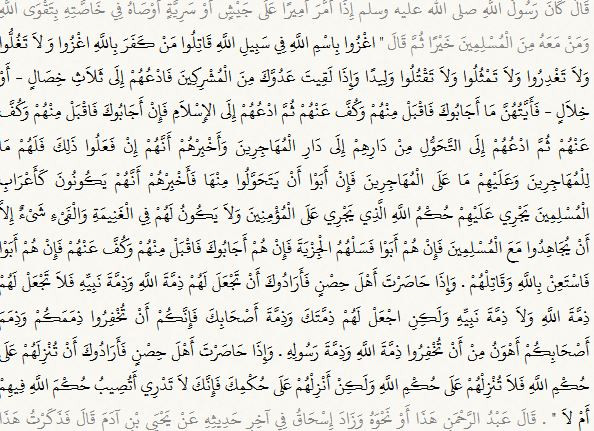 قَالَ كَانَ رَسُولُ اللَّهِ صلى الله عليه وسلم إِذَا أَمَّرَ أَمِيرًا عَلَى جَيْشٍ أَوْ سَرِيَّةٍ أَوْصَاهُ فِي خَاصَّتِهِ بِتَقْوَى اللَّهِ
وَمَنْ مَعَهُ مِنَ الْمُسْلِمِينَ خَيْرًا ثُمَّ قَالَ " اغْزُوا بِاسْمِ اللَّهِ فِي سَبِيلِ اللَّهِ قَاتِلُوا مَنْ كَفَرَ بِاللَّهِ اغْزُوا وَ لاَ تَغُلُّوا
وَلاَ تَغْدِرُوا وَلاَ تَمْثُلُوا وَلاَ تَقْتُلُوا وَلِيدًا وَإِذَا لَقِيتَ عَدُوَّكَ مِنَ الْمُشْرِكِينَ فَادْعُهُمْ إِلَى ثَلاَثِ خِصَالٍ - أَوْ
خِلاَلٍ - فَأَيَّتُهُنَّ مَا أَجَابُوكَ فَاقْبَلْ مِنْهُمْ وَكُفَّ عَنْهُمْ ثُمَّ ادْعُهُمْ إِلَى الإِسْلاَمِ فَإِنْ أَجَابُوكَ فَاقْبَلْ مِنْهُمْ وَكُفَّ
عَنْهُمْ ثُمَّ ادْعُهُمْ إِلَى التَّحَوُّلِ مِنْ دَارِهِمْ إِلَى دَارِ الْمُهَاجِرِينَ وَأَخْبِرْهُمْ أَنَّهُمْ إِنْ فَعَلُوا ذَلِكَ فَلَهُمْ مَا
لِلْمُهَاجِرِينَ وَعَلَيْهِمْ مَا عَلَى الْمُهَاجِرِينَ فَإِنْ أَبَوْا أَنْ يَتَحَوَّلُوا مِنْهَا فَأَخْبِرْهُمْ أَنَّهُمْ يَكُونُونَ كَأَعْرَابِ
الْمُسْلِمِينَ يَجْرِي عَلَيْهِمْ حُكْمُ اللَّهِ الَّذِي يَجْرِي عَلَى الْمُؤْمِنِينَ وَلاَ يَكُونُ لَهُمْ فِي الْغَنِيمَةِ وَالْفَىْءِ شَىْءٌ إِلاَّ
أَنْ يُجَاهِدُوا مَعَ الْمُسْلِمِينَ فَإِنْ هُمْ أَبَوْا فَسَلْهُمُ الْجِزْيَةَ فَإِنْ هُمْ أَجَابُوكَ فَاقْبَلْ مِنْهُمْ وَكُفَّ عَنْهُمْ فَإِنْ هُمْ أَبَوْا
فَاسْتَعِنْ بِاللَّهِ وَقَاتِلْهُمْ . وَإِذَا حَاصَرْتَ أَهْلَ حِصْنٍ فَأَرَادُوكَ أَنْ تَجْعَلَ لَهُمْ ذِمَّةَ اللَّهِ وَذِمَّةَ نَبِيِّهِ فَلاَ تَجْعَلْ لَهُمْ
ذِمَّةَ اللَّهِ وَلاَ ذِمَّةَ نَبِيِّهِ وَلَكِنِ اجْعَلْ لَهُمْ ذِمَّتَكَ وَذِمَّةَ أَصْحَابِكَ فَإِنَّكُمْ أَنْ تُخْفِرُوا ذِمَمَكُمْ وَذِمَمَ
أَصْحَابِكُمْ أَهْوَنُ مِنْ أَنْ تُخْفِرُوا ذِمَّةَ اللَّهِ وَذِمَّةَ رَسُولِهِ . وَإِذَا حَاصَرْتَ أَهْلَ حِصْنٍ فَأَرَادُوكَ أَنْ تُنْزِلَهُمْ عَلَى
حُكْمِ اللَّهِ فَلاَ تُنْزِلْهُمْ عَلَى حُكْمِ اللَّهِ وَلَكِنْ أَنْزِلْهُمْ عَلَى حُكْمِكَ فَإِنَّكَ لاَ تَدْرِي أَتُصِيبُ حُكْمَ اللَّهِ فِيهِمْ
أَمْ لاَ " . قَالَ عَبْدُ الرَّحْمَنِ هَذَا أَوْ نَحْوَهُ وَزَادَ إِسْحَاقُ فِي آخِرِ حَدِيثِهِ عَنْ يَحْيَى بْنِ آدَمَ قَالَ فَذَكَرْتُ هَذَا